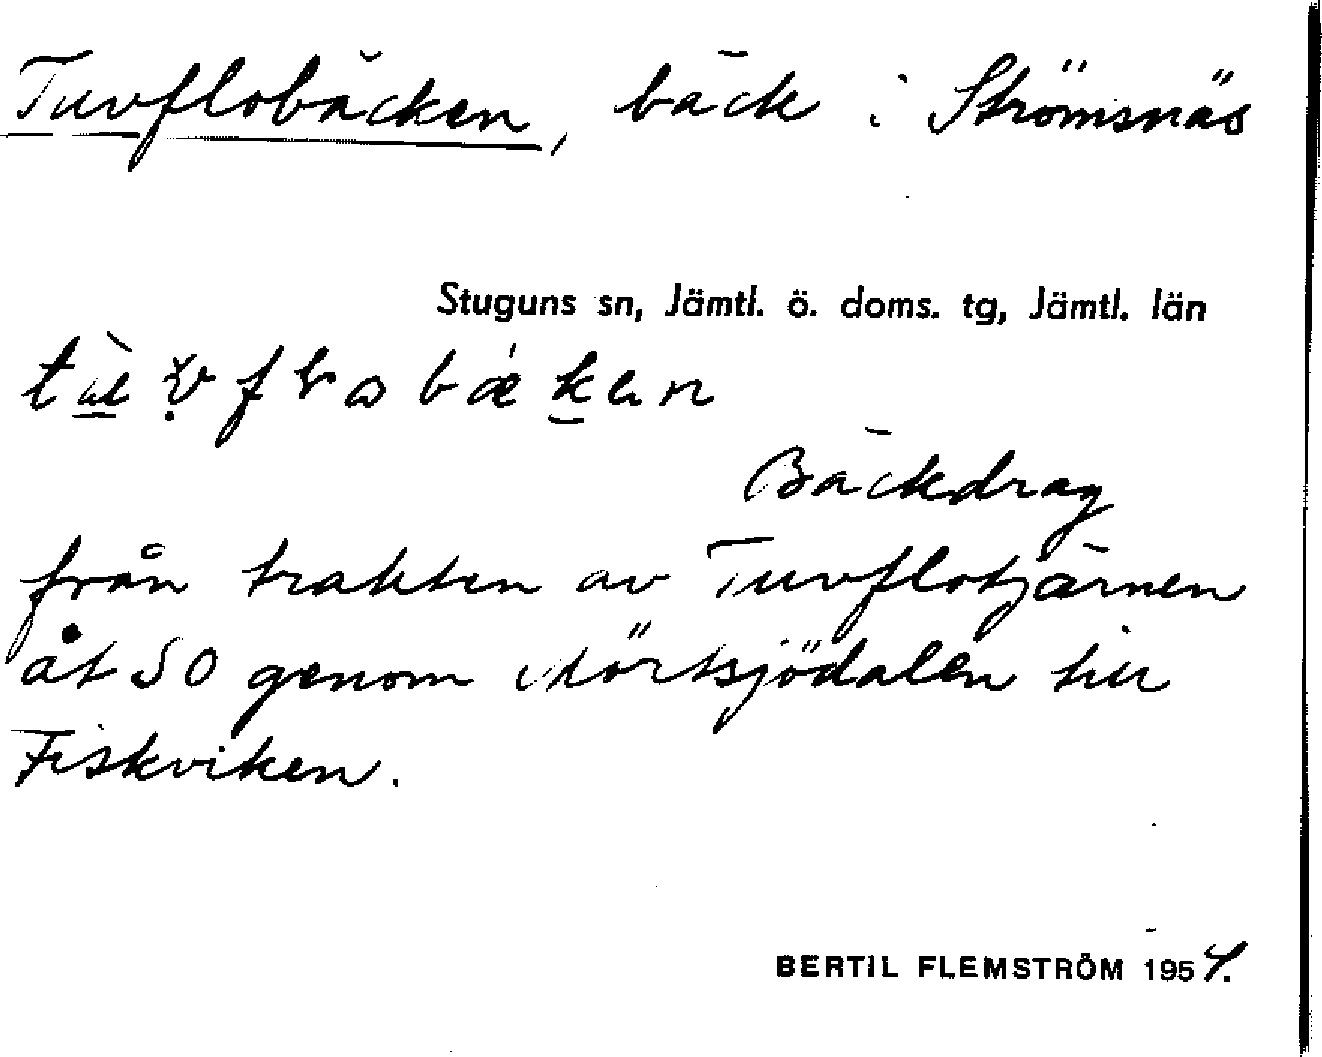 Tuvflobäcken, bäck i Strömsnäs
Stuguns sn, Jämtl. ö. doms. tg, Jämtl. län
Bäckdrag
från trakten av Tuvflotjärnen
åt SO genom Mörtsjödalen till
Fiskviken.
BERTIL FLEMSTRÖM 1954.